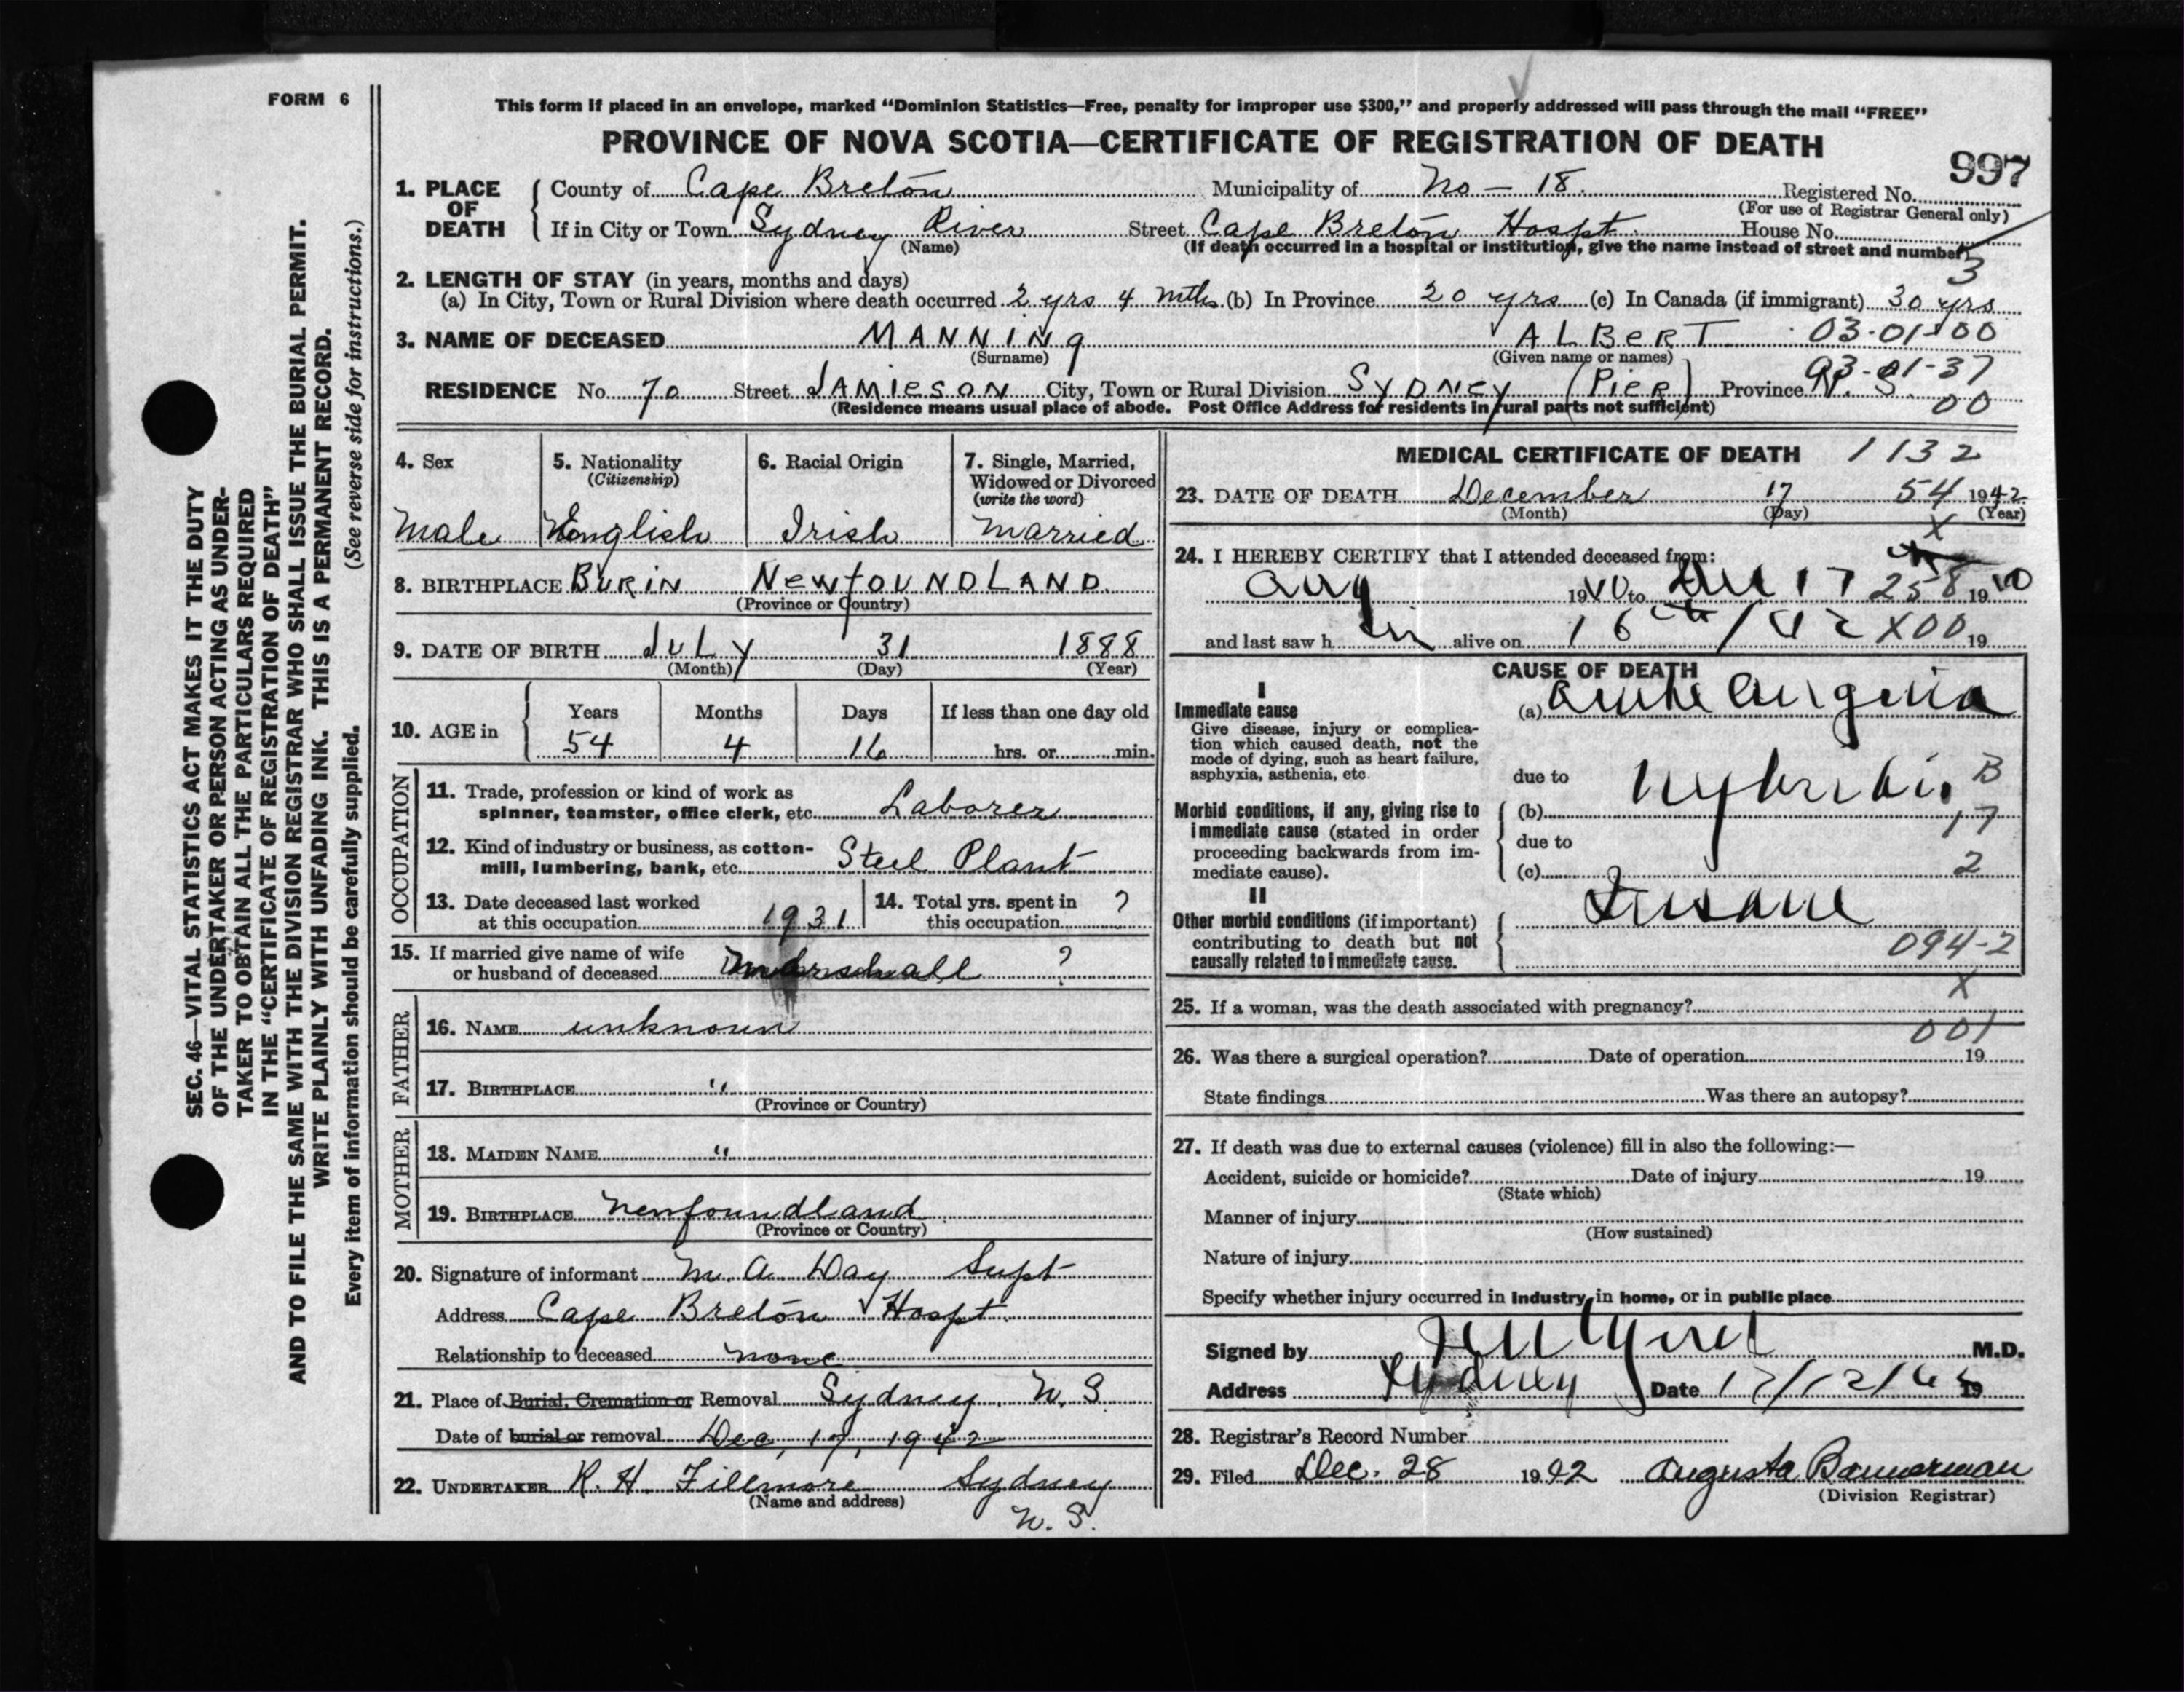 FORM 6
This form if placed in an envelope, marked “Dominion Statistics—Free, penalty for improper use $300,” and properly addressed will pass through the mail “FREE”
PROVINCE OF NOVA SCOTIA—CERTIFICATE OF REGISTRATION OF DEATH
997
1. PLACE OF DEATH County of Cape Breton Municipality of No - 18. Registered No.
(For use of Registrar General only)
If in City or Town Sydney River Street Cape Breton Hospt. House No.
(Name) (If death occurred in a hospital or institution, give the name instead of street and number)
3
2. LENGTH OF STAY (in years, months and days)
(a) In City, Town or Rural Division where death occurred 2 yrs 4 mths (b) In Province 20 yrs (c) In Canada (if immigrant) 30 yrs
3. NAME OF DECEASED MANNINg ALBERT 03-01-00
(Surname) (Given name or names)
03-01-37
RESIDENCE No. 70 Street JAMIESON City, Town or Rural Division SYDNEY (PIER) Province N. S.
(Residence means usual place of abode. Post Office Address for residents in rural parts not sufficient) 00
4. Sex 5. Nationality (Citizenship) 6. Racial Origin 7. Single, Married, Widowed or Divorced (write the word)
Male English Irish Married
8. BIRTHPLACE BURIN NEWfOUNDLAND.
(Province or Country)
9. DATE OF BIRTH JULY 31 1888
(Month) (Day) (Year)
10. AGE in Years Months Days If less than one day old
54 4 16 hrs. or min.
OCCUPATION
11. Trade, profession or kind of work as spinner, teamster, office clerk, etc. Laborer
12. Kind of industry or business, as cotton-mill, lumbering, bank, etc. Steel Plant
13. Date deceased last worked at this occupation 1931 14. Total yrs. spent in this occupation ?
15. If married give name of wife or husband of deceased Marshall ?
FATHER
16. NAME unknown
17. BIRTHPLACE "
(Province or Country)
MOTHER
18. MAIDEN NAME "
19. BIRTHPLACE Newfoundland
(Province or Country)
20. Signature of informant M. A. Day Supt
Address Cape Breton Hospt.
Relationship to deceased none
21. Place of Burial, Cremation or Removal Sydney N. S.
Date of burial or removal Dec, 17, 1942
22. UNDERTAKER R. H. Fillmore Sydney
(Name and address)
N. S.
MEDICAL CERTIFICATE OF DEATH 1132
23. DATE OF DEATH December 17 54 1942
(Month) (Day) (Year)
X
24. I HEREBY CERTIFY that I attended deceased from:
Aug 1940 to Dec 17 258 19
and last saw h im alive on 16th/42 X00 19
CAUSE OF DEATH
I
Immediate cause
Give disease, injury or complication which caused death, not the mode of dying, such as heart failure, asphyxia, asthenia, etc.
(a) acute Angina
due to B
Morbid conditions, if any, giving rise to immediate cause (stated in order proceeding backwards from immediate cause).
(b) 17
due to
(c) 2
II
Other morbid conditions (if important) contributing to death but not causally related to immediate cause.
Insane
094-2
X
25. If a woman, was the death associated with pregnancy?
001
26. Was there a surgical operation? Date of operation 19
State findings Was there an autopsy?
27. If death was due to external causes (violence) fill in also the following:—
Accident, suicide or homicide? Date of injury 19
(State which)
Manner of injury
(How sustained)
Nature of injury
Specify whether injury occurred in Industry, in home, or in public place
Signed by M.D.
Address Sydney Date 17/12/42 19
28. Registrar's Record Number
29. Filed Dec. 28 1942 Augusta Bannerman
(Division Registrar)
SEC. 46—VITAL STATISTICS ACT MAKES IT THE DUTY
OF THE UNDERTAKER OR PERSON ACTING AS UNDER-
TAKER TO OBTAIN ALL THE PARTICULARS REQUIRED
IN THE “CERTIFICATE OF REGISTRATION OF DEATH”
AND TO FILE THE SAME WITH THE DIVISION REGISTRAR WHO SHALL ISSUE THE BURIAL PERMIT.
WRITE PLAINLY WITH UNFADING INK. THIS IS A PERMANENT RECORD.
Every item of information should be carefully supplied. (See reverse side for instructions.)